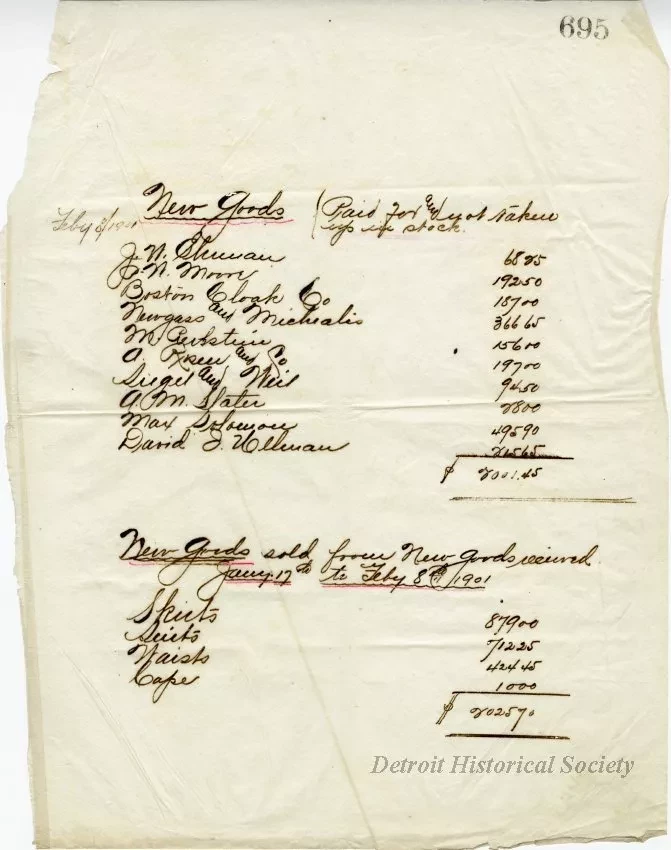 695
Feby 8/1901 New Goods (Paid for and not taken
up in stock.
J. N. 6825
J. N. Moore 19250
Boston Cloak Co 18700
Newgass and Michealis 36665
M. 15600
A. Rosen and Co 19700
Siegel and Weil 9450
A. M. Slater 2800
Max Solomon 49590
David J. Ullman 21565
$ 2001.45
New goods sold from New goods recieved
Jany. 17th to Feby 8th/1901
Skirts 87900
Suits 71225
Waists 42445
Cape 1000
$ 202570
Detroit Historical Society